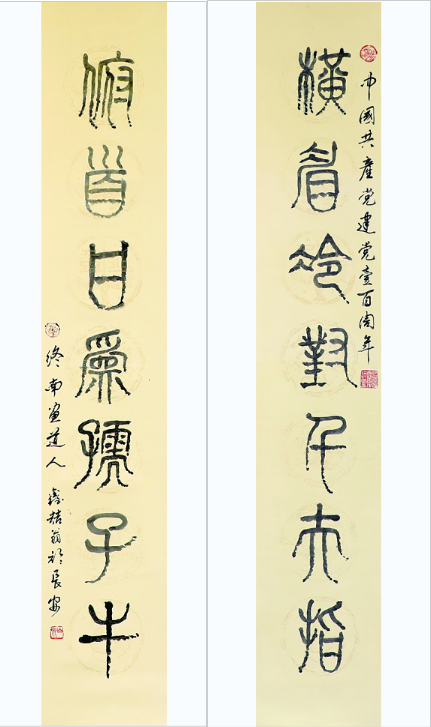 中國共產党建党壹百周年
橫眉冷對千夫指
俯首甘爲孺子牛
终南画道人 翁於長安